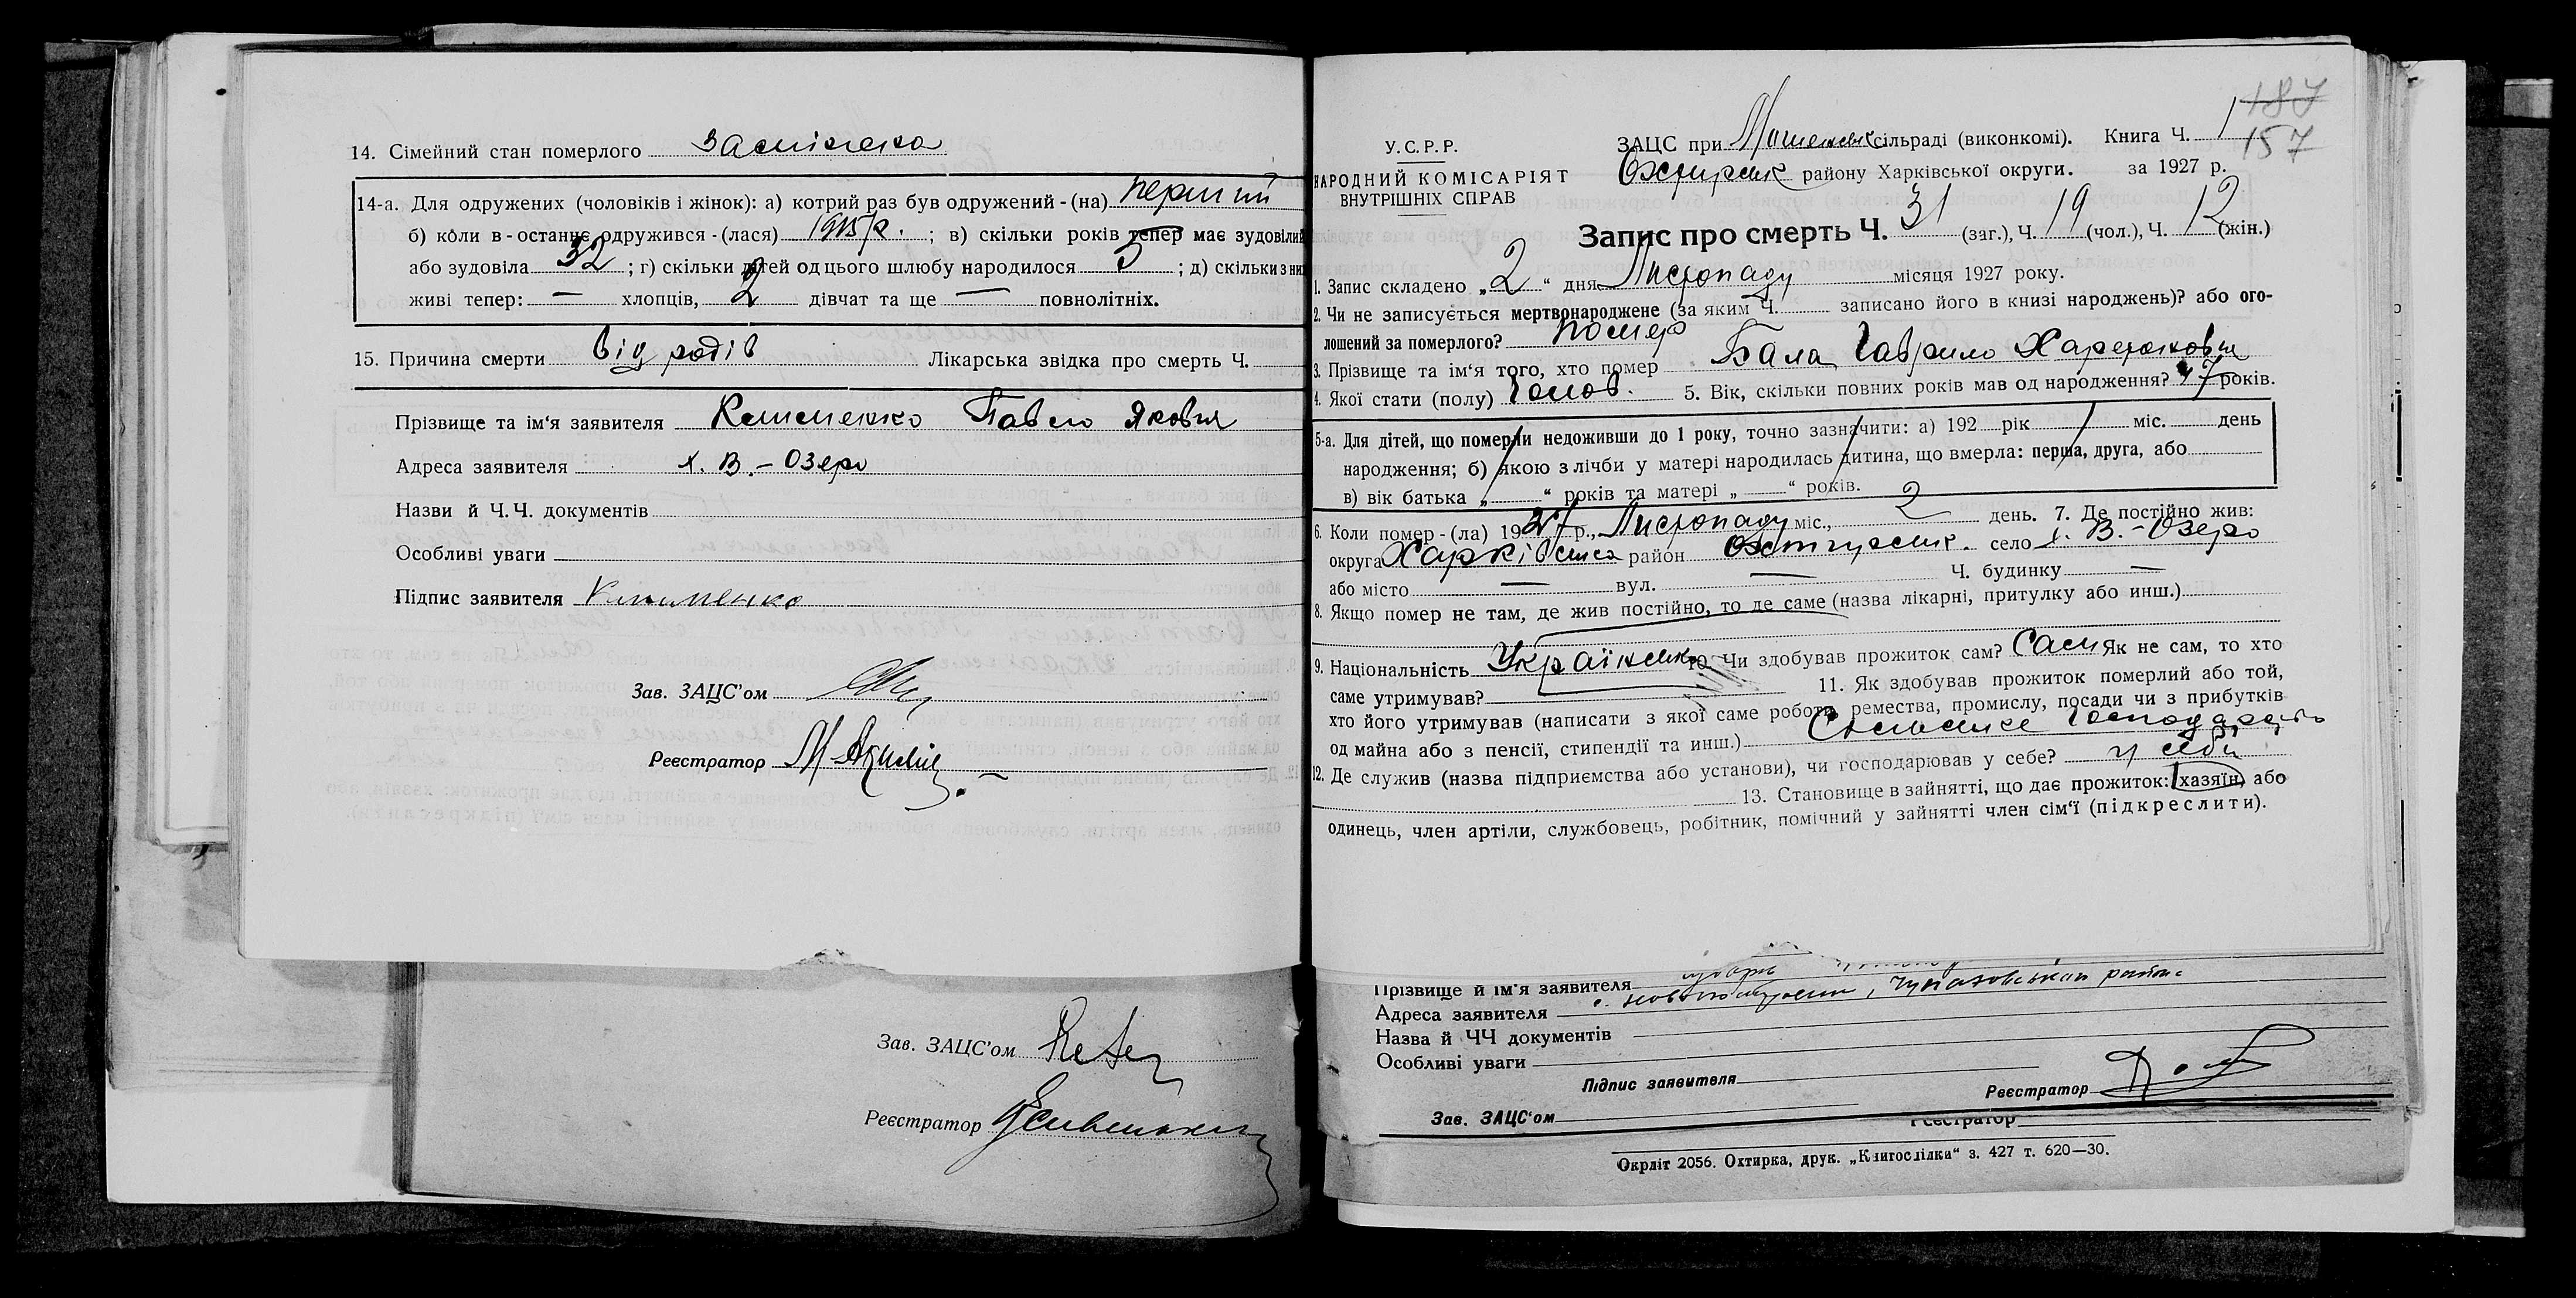 14. Сімейний стан померлого заміжня
14-а. Для одружених (чоловіків і жінок): а) котрий раз був одружений-(на) перший
б) коли в-останнє одружився-(лася) 1915 р. ; в) скільки років тепер має зудовілий
або зудовіла 32 ; г) скільки дітей од цього шлюбу народилося 3 ; д) скільки з них
живі тепер: — хлопців, 2 дівчат та ще — повнолітніх.
15. Причина смерти від родів Лікарська звідка про смерть Ч.
Прізвище та ім'я заявителя Клименко Павло Якович
Адреса заявителя х. В.-Озеро
Назви й Ч.Ч. документів
Особливі уваги
Підпис заявителя Клименко
Зав. ЗАЦС'ом
Реєстратор
Зав. ЗАЦС'ом
Реєстратор
187
157
У.С.Р.Р.
НАРОДНИЙ КОМІСАРІЯТ
ВНУТРІШНІХ СПРАВ
ЗАЦС при сільраді (виконкомі). Книга Ч. 1
Охтирськ району Харківської округи. за 1927 р.
Запис про смерть Ч. 31 (заг.), Ч. 19 (чол.), Ч. 12 (жін.)
1. Запис складено „2“ дня Листопаду місяця 1927 року.
2. Чи не записується мертвонароджене (за яким Ч. записано його в книзі народжень)? або ого-
лошений за померлого? помер
3. Прізвище та ім'я того, хто помер Бала Гаврило Харитонович
4. Якої стати (полу) чолов. 5. Вік, скільки повних років мав од народження? 47 років.
5-а. Для дітей, що померли недоживши до 1 року, точно зазначити: а) 192 рік міс. день
народження; б) якою з лічби у матері народилась дитина, що вмерла: перша, друга, або
в) вік батька „ “ років та матері „ “ років.
6. Коли помер-(ла) 1927 р., Листопаду міс., 2 день. 7. Де постійно жив:
округа Харківська район Охтирськ. село х. В.-Озеро
або місто — вул. — Ч. будинку —
8. Якщо помер не там, де жив постійно, то де саме (назва лікарні, притулку або инш.)
9. Національність Українська 10. Чи здобував прожиток сам? Сам Як не сам, то хто
саме утримував? 11. Як здобував прожиток померлий або той,
хто його утримував (написати з якої саме роботи, ремества, промислу, посади чи з прибутків
од майна або з пенсії, стипендії та инш.) Сільське господарств
12. Де служив (назва підприємства або установи), чи господарював у себе? у себе
13. Становище в зайнятті, що дає прожиток: хазяїн, або
одинець, член артілі, службовець, робітник, помічний у зайнятті член сім'ї (підкреслити).
Прізвище й ім'я заявителя
Адреса заявителя
Назва й ЧЧ документів
Особливі уваги
Підпис заявителя Реєстратор
Зав. ЗАЦС'ом Реєстратор
Окрліт 2056. Охтирка, друк. „Книгоспілка“ з. 427 т. 620—30.